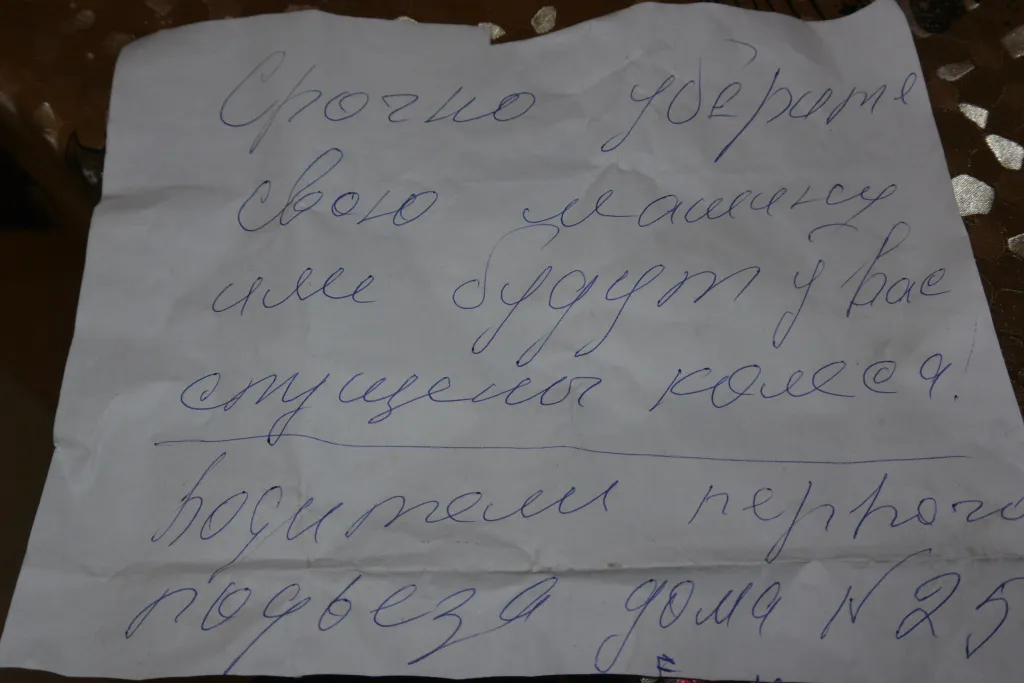 Срочно уберите
свою машину
или будут у вас
спущены колеса!
Водители первого
подьеза дома N 25